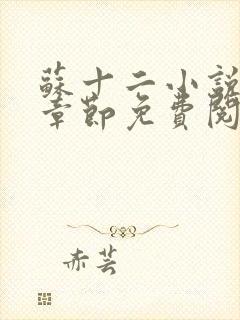 蘇十二小說
章節免費閱
赤芸